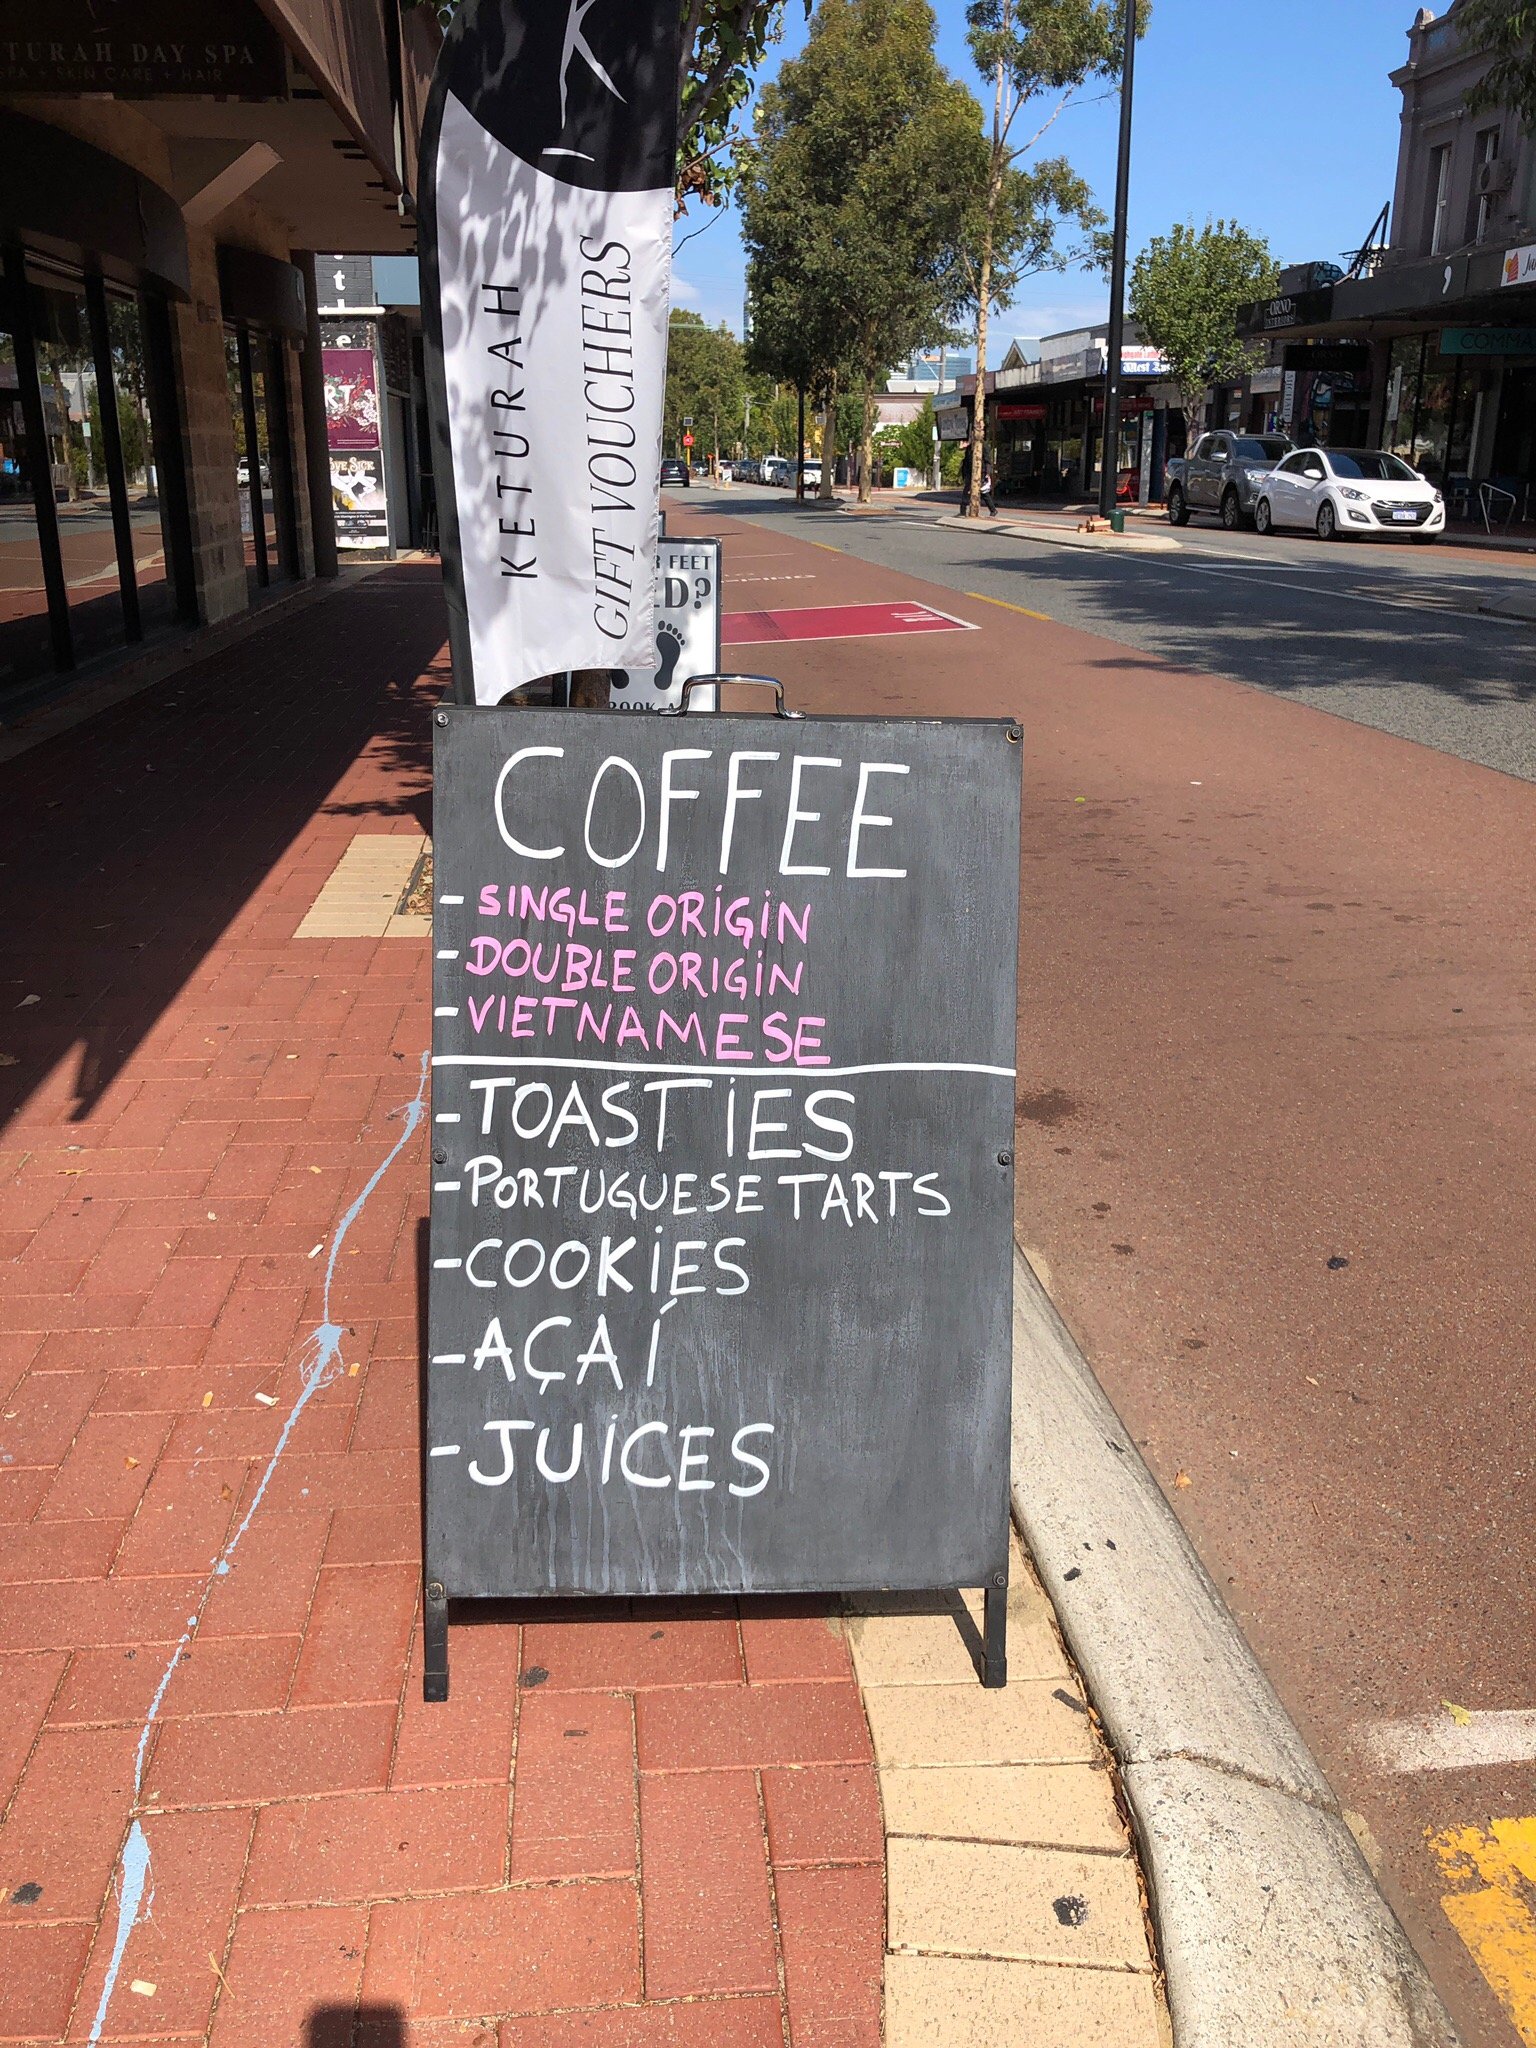 TURAH DAY SPA
SPA + SKIN CARE + HAIR
K
KETURAH
GIFT VOUCHERS
FEET
ED?
BOOK A
ORNO
COMMA
COFFEE
- SINGLE ORIGIN
- DOUBLE ORIGIN
- VIETNAMESE
- TOASTIES
- PORTUGUESE TARTS
- COOKIES
- AÇAÍ
- JUICES